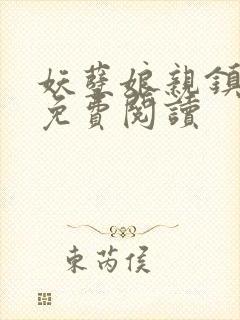 妖孽娘親鎮
免費閱讀
東芮侯